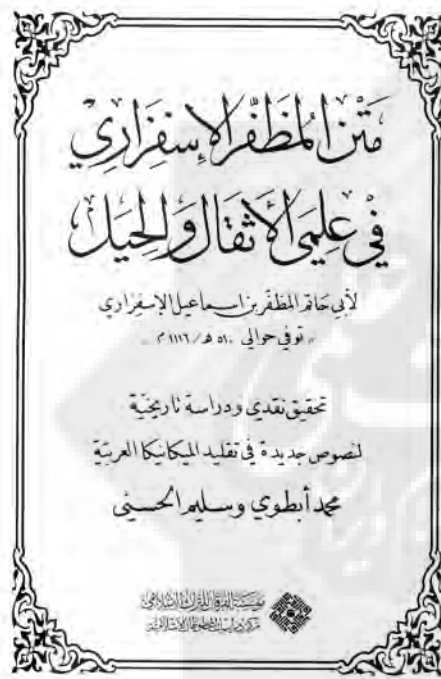 مَتْن المُظَفَّر الإِسْفِزَارِي
في عِلْمَي الأَثْقَال وَالحِيَل
لأبي حَاتم المظفّر بن اسماعيل الإسفزاري
« توفي حوالي ٥١٠ هـ / ١١١٦ م »
تحقيق نقدي ودراسة تاريخيّة
لنصوص جديدة في تقليد الميكانيكا العربيّة
محمد أبطوي وسليم الحسني
مؤسسة الفرقان للتراث الإسلامي
مركز دراسات المخطوطات الإسلامية